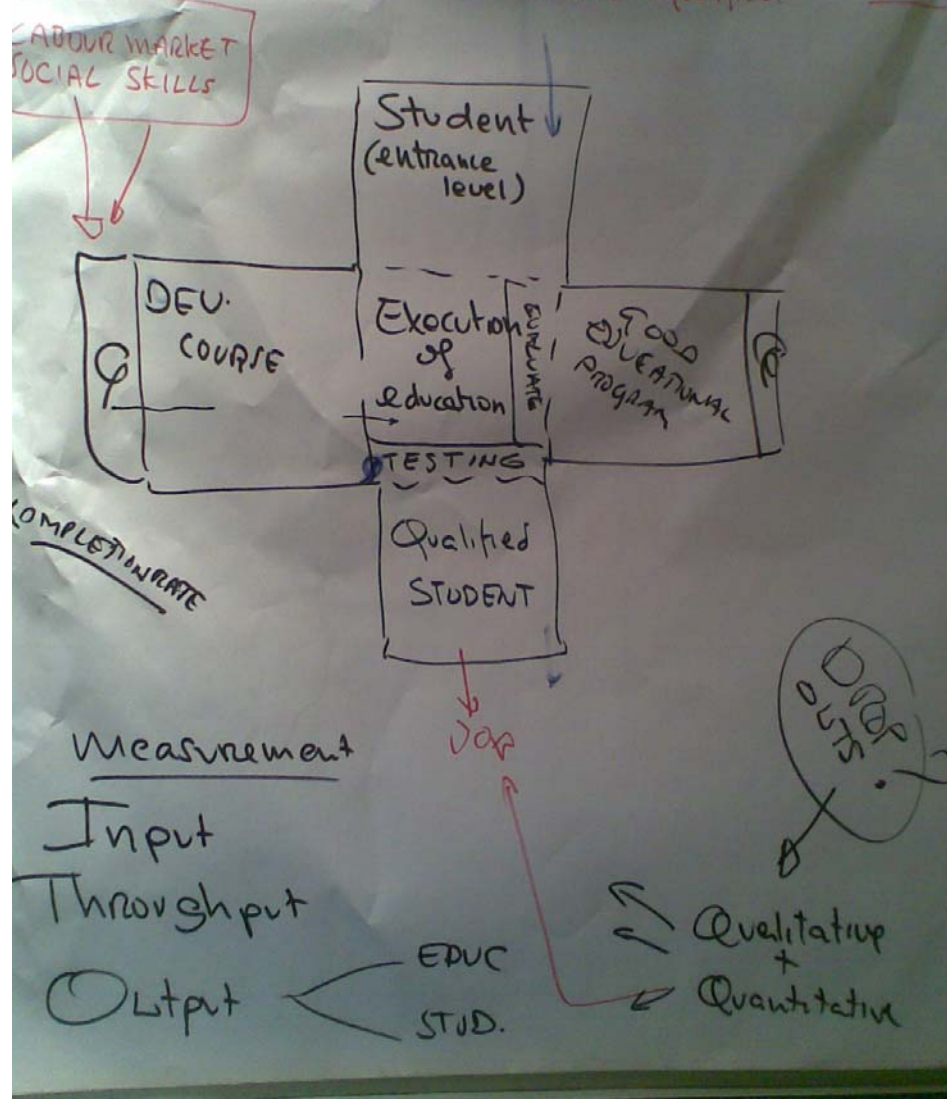 LABOUR MARKET
SOCIAL SKILLS
Student
(entrance
level)
DEV.
COURSE
Execution
of
education
EVALUATE
GOOD
EDUCATIONAL
PROGRAM
TESTING
Qualified
STUDENT
COMPLETION RATE
JOB
DROP
OUTS
Measurement
Input
Throughput
Output
EDUC
STUD.
Qualitative
+
Quantitative